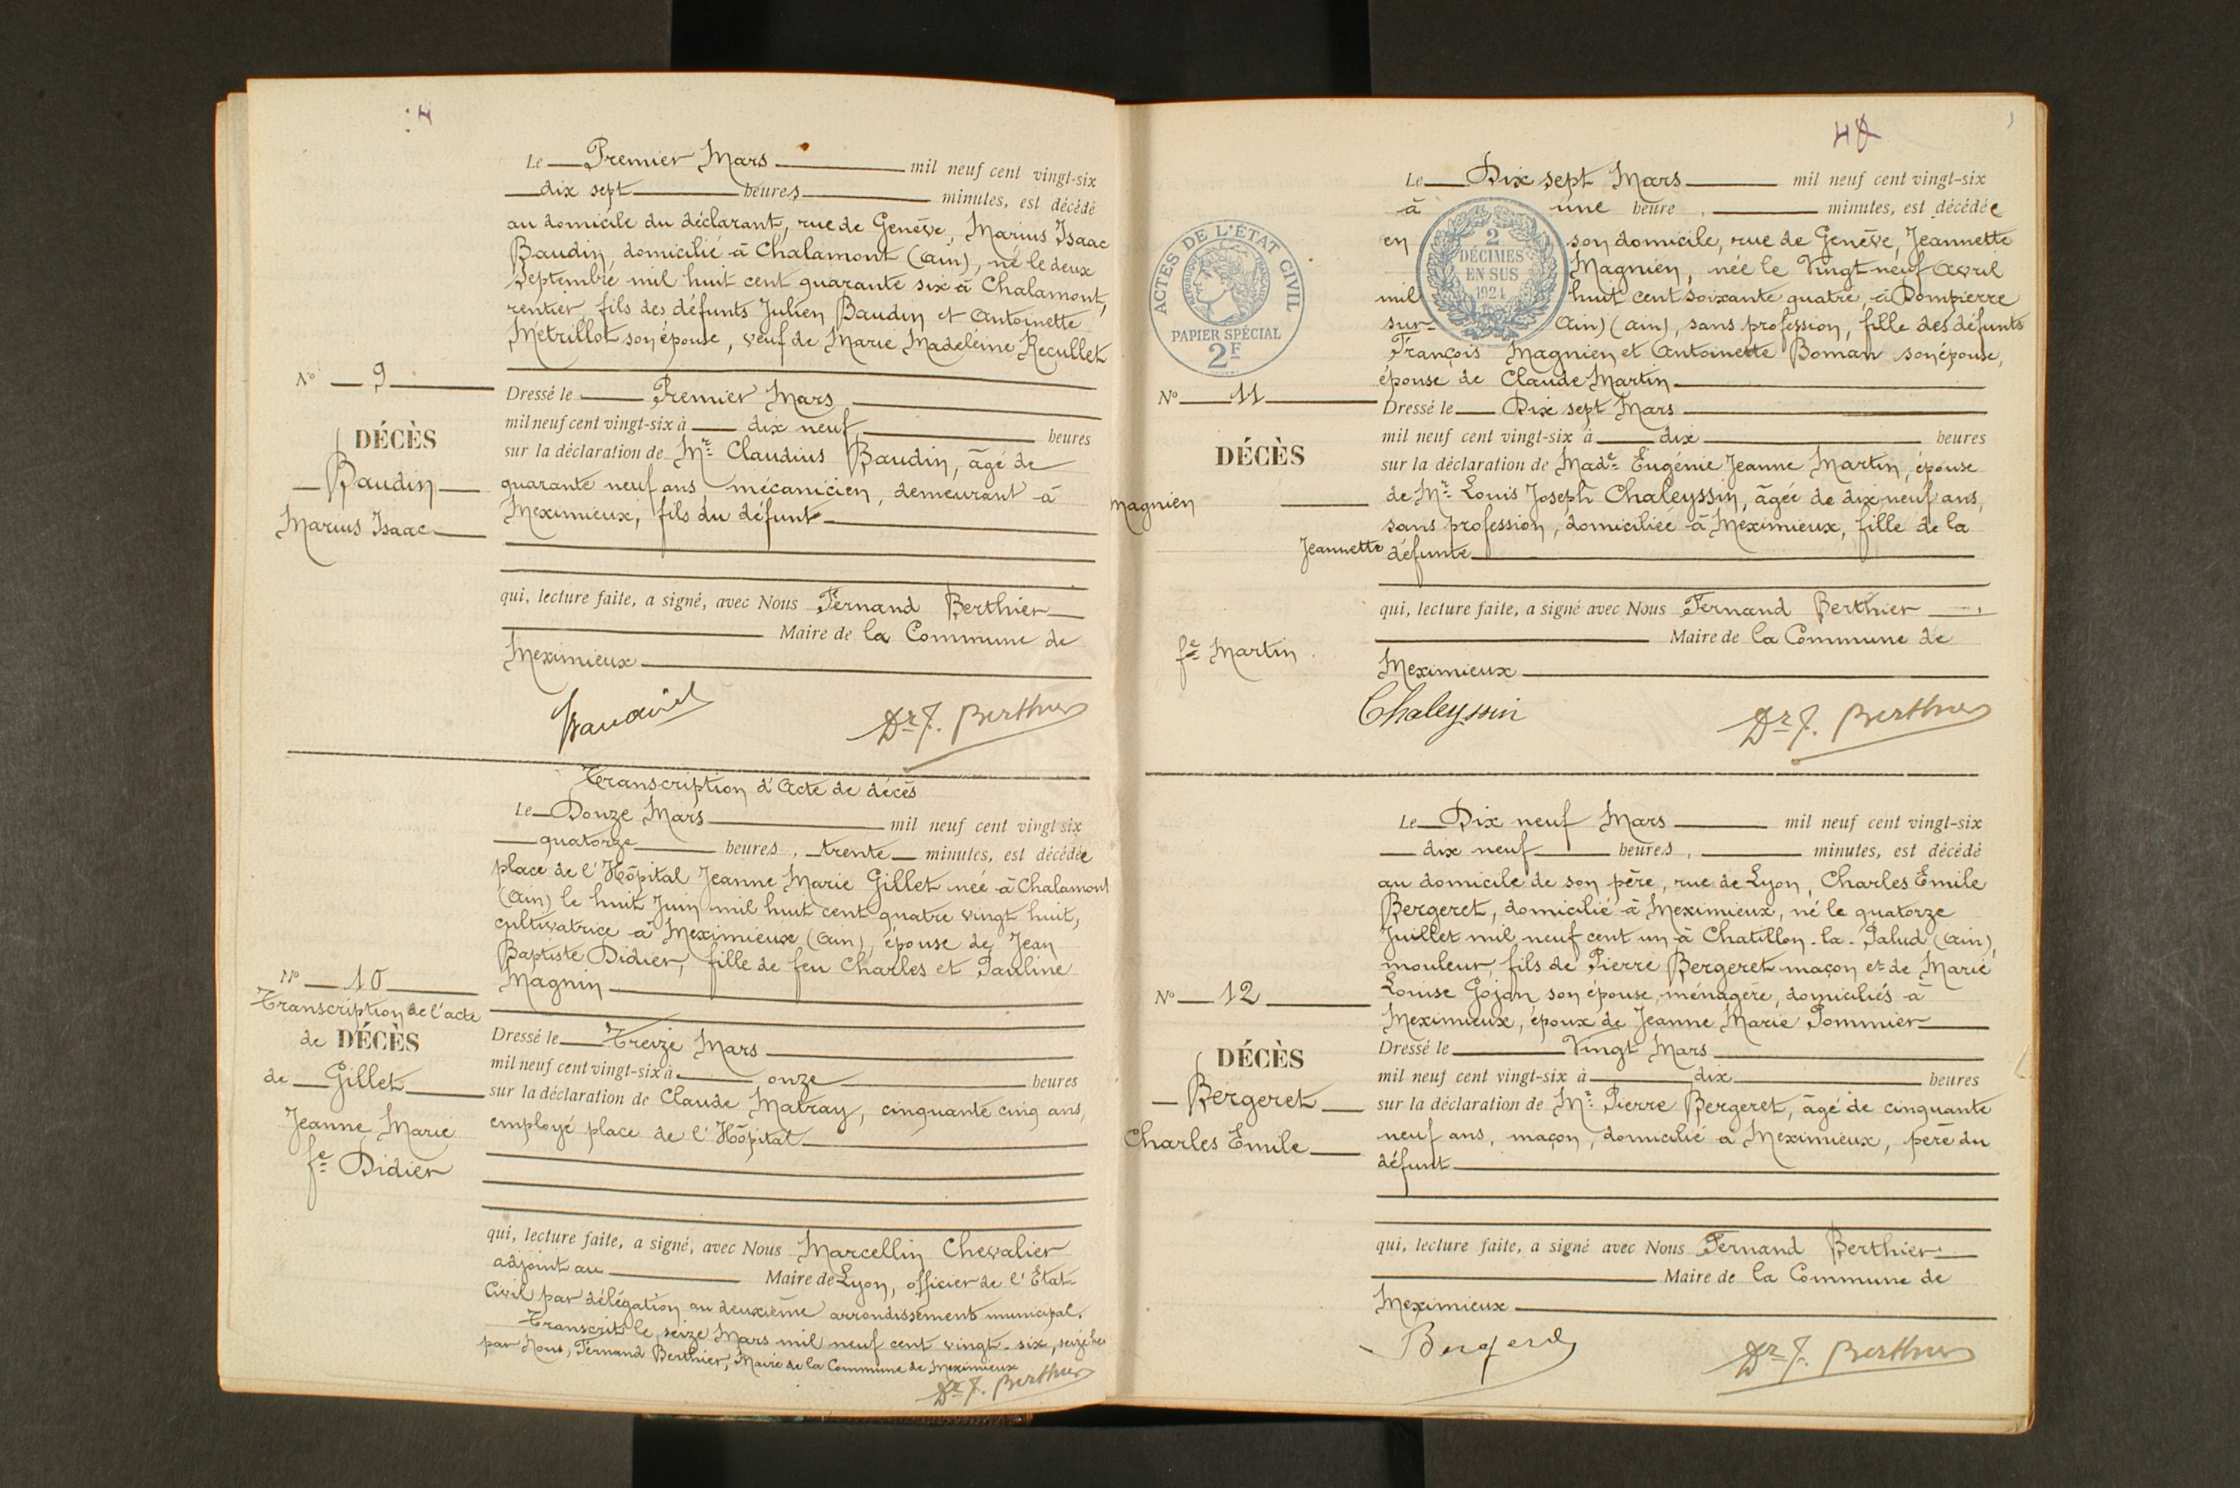 4
Le Premier Mars mil neuf cent vingt-six
dix sept heures minutes, est décédé
au domicile du déclarant, rue de Genève, Marius Isaac
Baudin, domicilié à Chalamont (Ain), né le deux
Septembre mil huit cent quarante six à Chalamont,
rentier, fils des défunts Julien Baudin et Antoinette
Metrillot son épouse, veuf de Marie Madeleine Recullet
N° 9
DÉCÈS
Baudin
Marius Isaac
Dressé le Premier Mars
mil neuf cent vingt-six à dix neuf heures
sur la déclaration de Mr Claudius Baudin, âgé de
quarante neuf ans, mécanicien, demeurant à
Meximieux, fils du défunt
qui, lecture faite, a signé, avec Nous Fernand Berthier
Maire de la Commune de
Meximieux
Baudin
Dr F. Berthier
Transcription d'Acte de décès
Le Douze Mars mil neuf cent vingt six
quatorze heures, trente minutes, est décédée
place de l'Hôpital Jeanne Marie Gillet née à Chalamont
(Ain) le huit Juin mil huit cent quatre vingt huit,
cultivatrice à Meximieux (Ain), épouse de Jean
Baptiste Didier, fille de feu Charles et Pauline
Magnin
N° 10
Transcription de l'acte
de DÉCÈS
de Gillet
Jeanne Marie
fe Didier
Dressé le Treize Mars
mil neuf cent vingt-six à onze heures
sur la déclaration de Claude Matray, cinquante cinq ans,
employé place de l'Hôpital
qui, lecture faite, a signé, avec Nous Marcellin Chevalier
adjoint au Maire de Lyon, officier de l'Etat
Civil par délégation au deuxième arrondissement municipal.
Transcrit le seize Mars mil neuf cent vingt-six, seize hes
par Nous, Fernand Berthier, Maire de la Commune de Meximieux
Dr F. Berthier
4
ACTES DE L'ÉTAT CIVIL
PAPIER SPÉCIAL
2F
2
DÉCIMES
EN SUS
1924
Le Dix sept Mars mil neuf cent vingt-six
à une heure, minutes, est décédée
en son domicile, rue de Genève, Jeannette
Magnien, née le Vingt neuf Avril
mil huit cent soixante quatre, à Dompierre
sur-Ain) (Ain), sans profession, fille des défunts
François Magnien et Antoinette Boman son épouse,
épouse de Claude Martin
N° 11
DÉCÈS
Magnien
Jeannette
fe Martin
Dressé le Dix sept Mars
mil neuf cent vingt-six à dix heures
sur la déclaration de Made Eugénie Jeanne Martin, épouse
de Mr Louis Joseph Chaleyssin, âgée de dix neuf ans,
sans profession, domiciliée à Meximieux, fille de la
défunte
qui, lecture faite, a signé avec Nous Fernand Berthier
Maire de la Commune de
Meximieux
Chaleyssin
Dr F. Berthier
Le Dix neuf Mars mil neuf cent vingt-six
dix neuf heures, minutes, est décédé
au domicile de son père, rue de Lyon, Charles Emile
Bergeret, domicilié à Meximieux, né le quatorze
Juillet mil neuf cent un à Chatillon-la-Palud (Ain),
mouleur, fils de Pierre Bergeret maçon et de Marie
Louise Gojon son épouse, ménagère, domiciliés à
Meximieux, époux de Jeanne Marie Pommier
N° 12
DÉCÈS
Bergeret
Charles Emile
Dressé le Vingt Mars
mil neuf cent vingt-six à dix heures
sur la déclaration de Mr Pierre Bergeret, âgé de cinquante
neuf ans, maçon, domicilié à Meximieux, père du
défunt
qui, lecture faite, a signé avec Nous Fernand Berthier
Maire de la Commune de
Meximieux
Bergeret
Dr F. Berthier